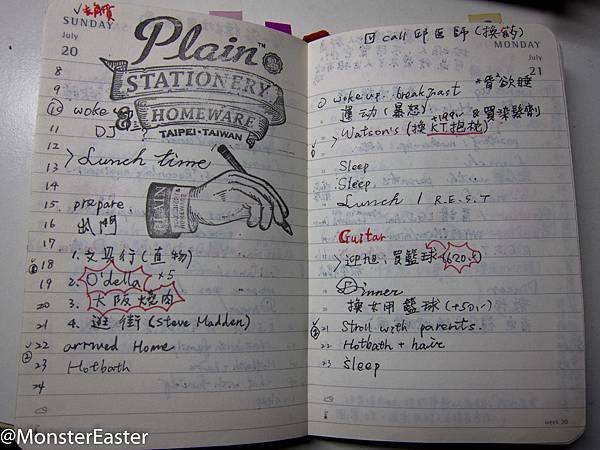 SUNDAY
July
20
Plain™
STATIONERY
&
HOMEWARE
TAIPEI·TAIWAN
8
9
10 woke up
11 DJ
12 >Lunch time
13
14
PLAIN
STATIONERY
15 prepare
16 出門
17 1. 文具行(直物)
18
19 2. O'della ×5
20 3. 大阪燒肉
21 4. 逛街(Steve Madden)
22 arrived Home
23 Hotbath
24
call 邱医師(換葯)
MONDAY
July
21
woke up. breakfast
*背 欲睡
運动(暴怒)
>Watson's (換KT抱枕) & 買染髮劑
Sleep
Sleep.
Lunch / R.E.S.T
Guitar
>迎旭:買籃球(620.5)
Dinner
換女用籃球(+50.-)
21 Stroll with parents.
22 Hotbath + hair
23 sleep
week 30
@MonsterEaster